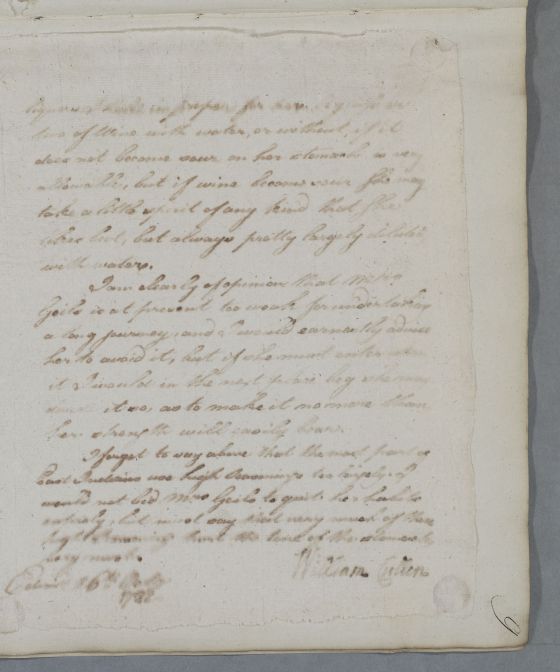 liquors I hold improper for her. A glass or
two of Wine with water, or without, if it
does not become sour on her stomach, is very
allowable, but if wine become sour She may
take a little spirit of any kind that She
likes best, but always pretty largely diluted
with water.
I am clearly of opinion that Mrs
Geils is at present too weak for undertaking
a long journey, and I would earnestly advise
her to avoid it, but if she must enter upon
it I would in the next place beg she may
it so, as to make it no more than
her strength will easily bear.
I forgot to say above that the most part of
East Indians use high Seasonings too largely. I
would not bid Mrs Geils to quit her habits
entirely, but must say that very much of these
high Seasonings hurt the tone of the stomach
very much.
William Cullen
6th
6